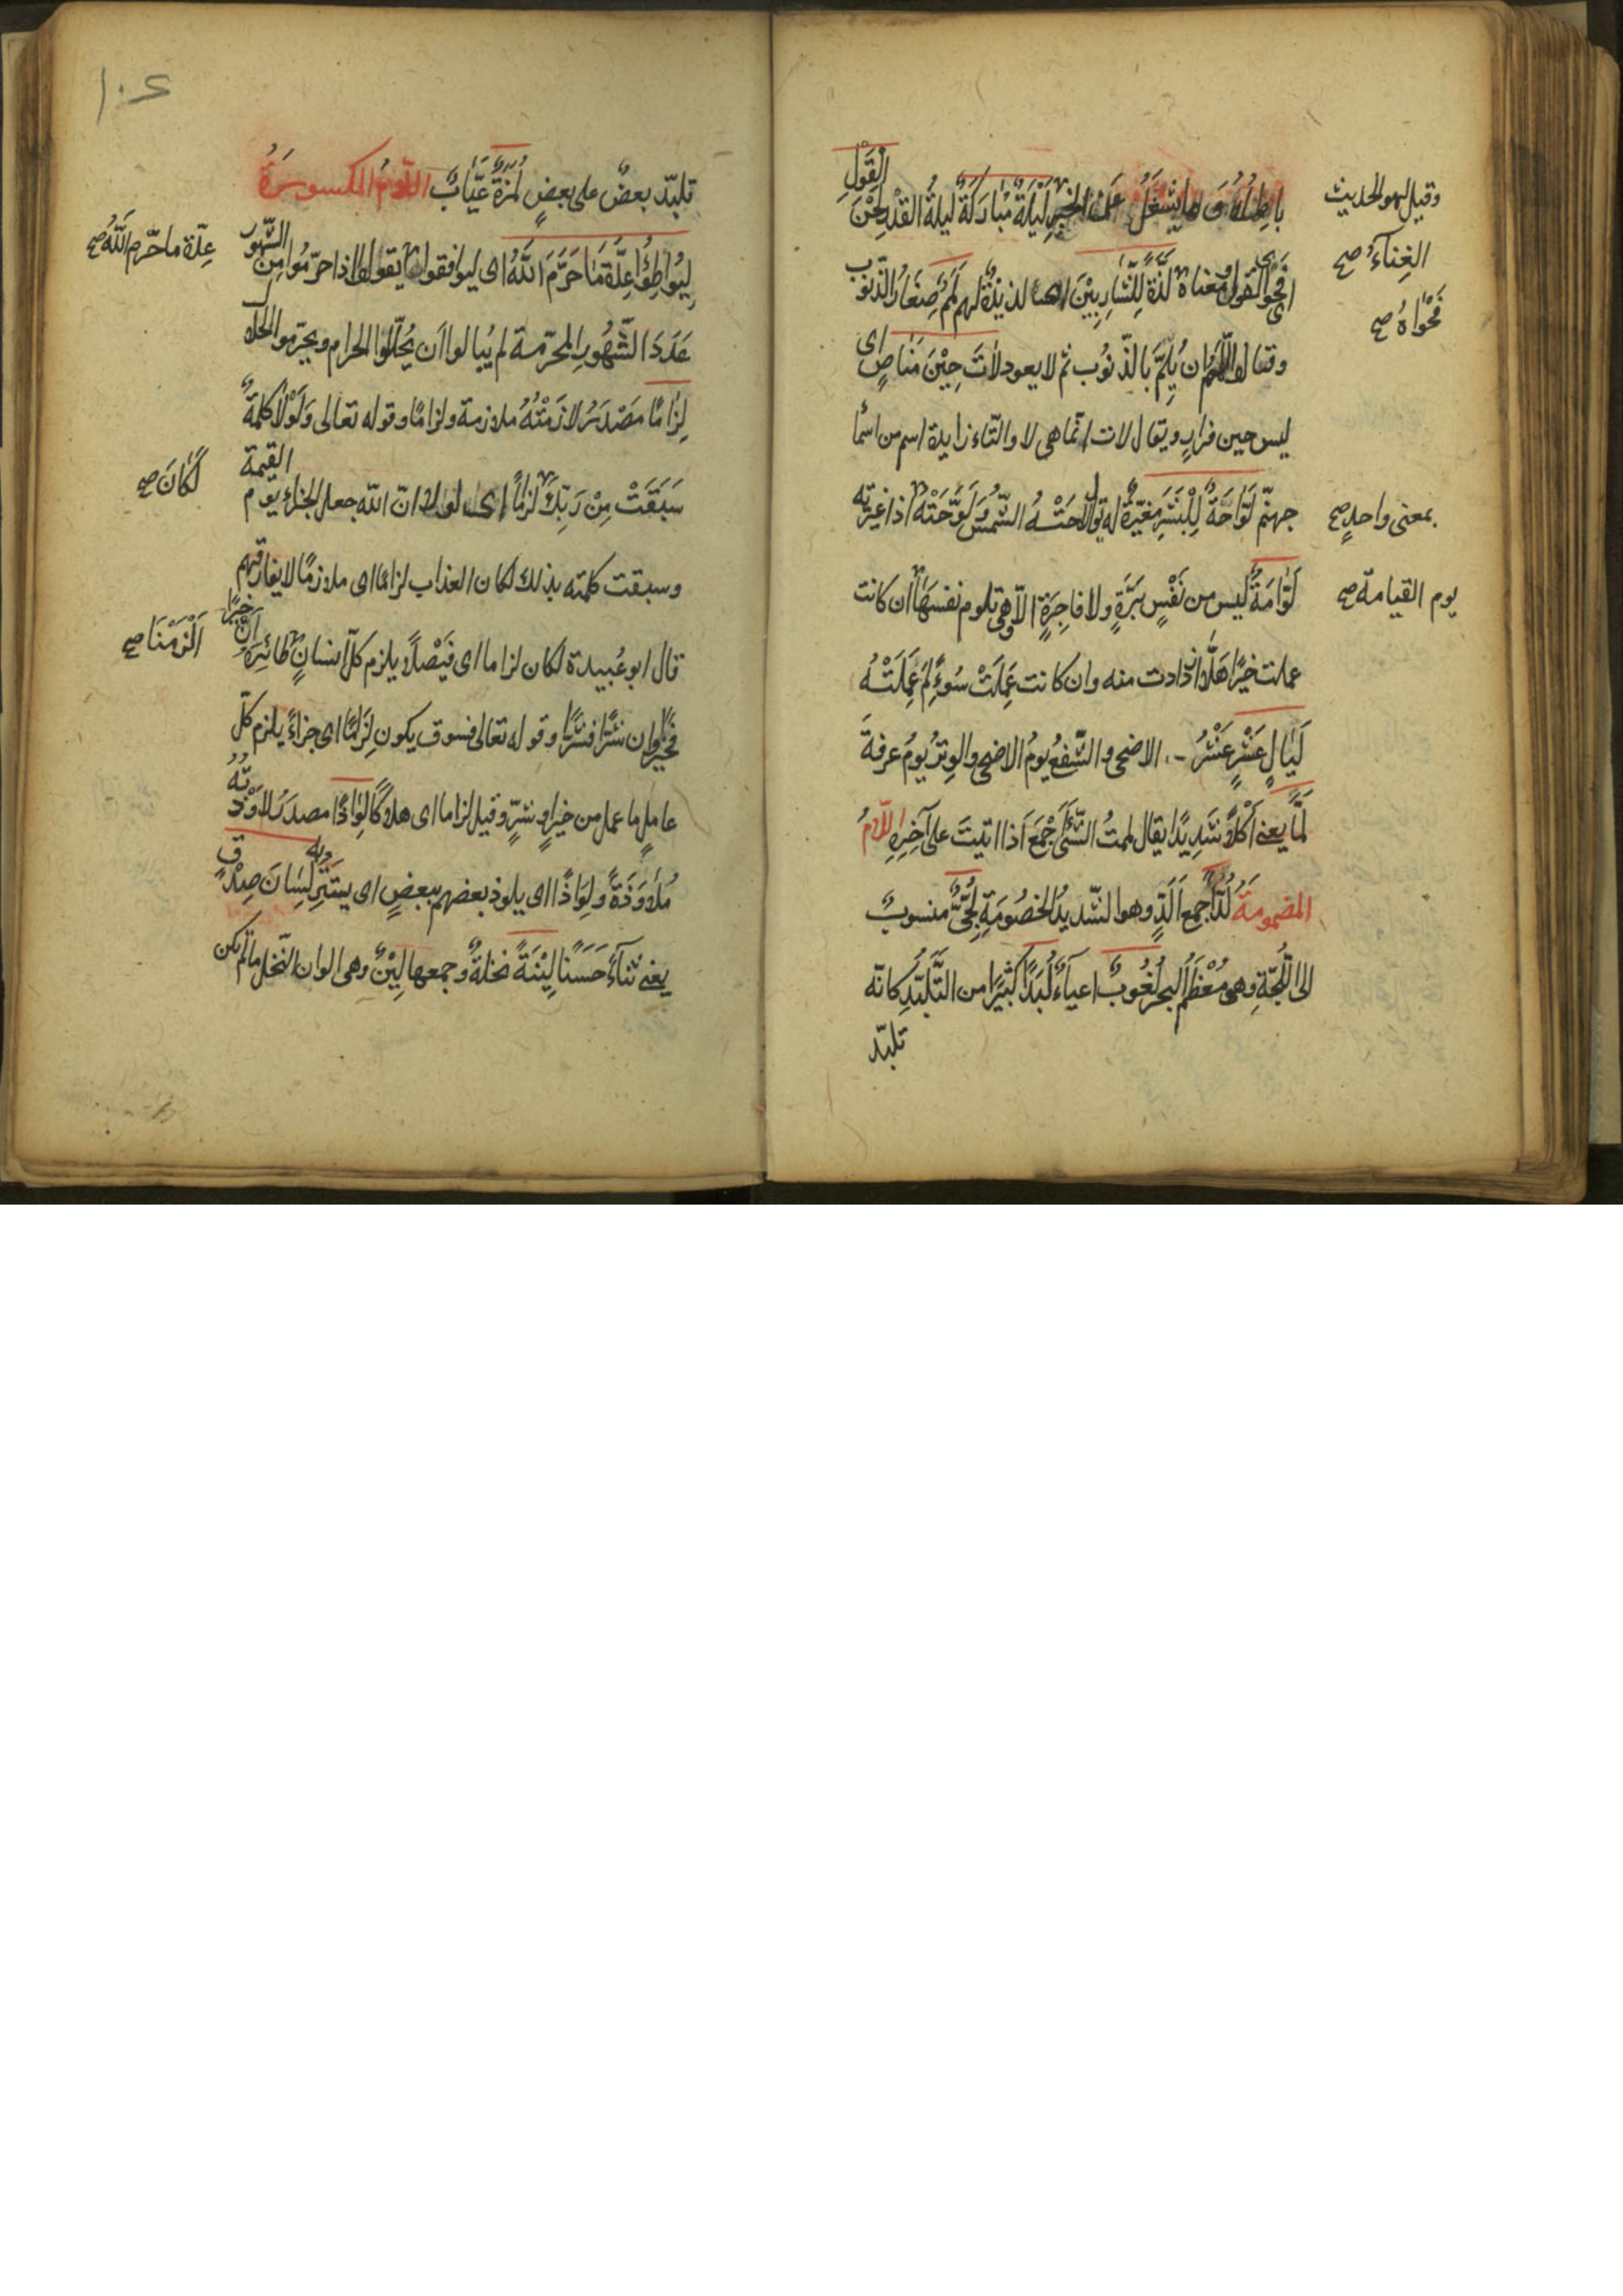 باطله وما يشغل عن الخير لَيْلَةٌ مُبَارَكَةٌ ليلةُ القدْر لَحْنَ القَوْلِ
وقيل لهو الحديث
الغِناءُ صح
فَحْوَى القول ومعناه لَذَّةٌ لِلشَّارِبِيْنَ اى لذيذة لهم لَمَمٌ صِغَارُ الذّنوب
فَحْوَاهُ صح
وقال اللّمم ان يُلِمَّ بالذّنوب ثم لا يعود لَاتَ حِيْنَ مَنَاصٍ اى
ليس حين فرارٍ ويقال لات انّما هى لا والتّاء زايدة اسم من اسما
جهنّم لَوَّاحَةٌ لِلْبَشَرِ مُغيِّرةٌ له يقال لَاحَتْهُ الشّمسُ ولَوَّحَتْهُ اذا غيّرته
بمعنى واحدٍ صح
لَوَّامَةٌ ليس من نَفْسٍ بَرَّةٍ ولا فاجِرَةٍ الّا وهى تلوم نفسَها ان كانت
يوم القيامة صح
عملت خيرًا هَلَّا ازدادت منه وان كانت عَمِلَتْ سُوءً لِمَ عَمِلَتْهُ
لَيَالٍ عَشْرٍ عَشْرُ الاضحى والشّفعُ يومُ الاضحى والوِترُ يومُ عرفةَ
لَمًّا يعنى اَكْلًا شَدِيدًا يقال لممتُ الشّئَ اَجْمَعَ اذا اتيتَ على آخِرِهِ اللّامُ
المضمومةُ لُدًّا جمع اَلَدٍّ وهو الشّديدُ الخصُومَةِ لُجِّىٌّ منسوبٌ
الى اللُّجّةِ وهى مُعْظَمُ البحر لُغُوبٌ اعياءٌ لُبَدًا كثيرًا من التّلبّدِ كانّه
تلبّد
١٠٤
تلبّد بعضٌ على بعضٍ لُمَزَةٌ عَيَّابٌ اللّامُ المكسورةُ
لِيُوَاطِؤُا عِدَّةَ مَا حَرَّمَ اللهُ اى ليوافقوا يقول اذا حرّمُوا مِنَ الشُّهُور
عِدّة ما حرّم اللهُ صح
عَدَدَ الشُّهُورِ المحرّمة لم يُبالوا اَن يُحلّلوا الحرام ويحرّموا الحلال
لِزَامًا مَصْدَرُ لازَمْتُهُ ملازمة ولزامًا وقوله تعالى وَلَوْلا كلمةٌ
سَبَقَتْ مِنْ رَبِّكَ لزامًا اى لولا انّ الله جعل الجزاء يوم القيمة
لَكَانَ صح
وسبقت كلمته بذلك لكان العذاب لزامًا اى ملازمًا لا يفارقهم
قال ابو عُبيدة لكان لزاما اى فَيْصَلًا ويلزم كلّ انسانٍ طائرَهُ اِنْ خيرًا
اَلْزَمْنَا صح
فخيرًا وان شرًّا فشرًّا وقوله تعالى فسوف يكون لِزَامًا اى جزاءً يلزم كلّ
عاملٍ ما عمل من خيرٍ او شرٍّ وقيل لزاما اى هلاكًا لِوَاذًا مصدَرُ لَاوَذْتُهُ
مُلَاوَذَةً ولِوَاذًا اى يلوذ بعضهم ببعضٍ اى يستتر به لِسَانَ صِدْقٍ
يعنى ثناءً حَسَنًا لِيْنَةً نخلةٌ وجمعها لِيْنٌ وهى الوان النّخل ما لم يكن